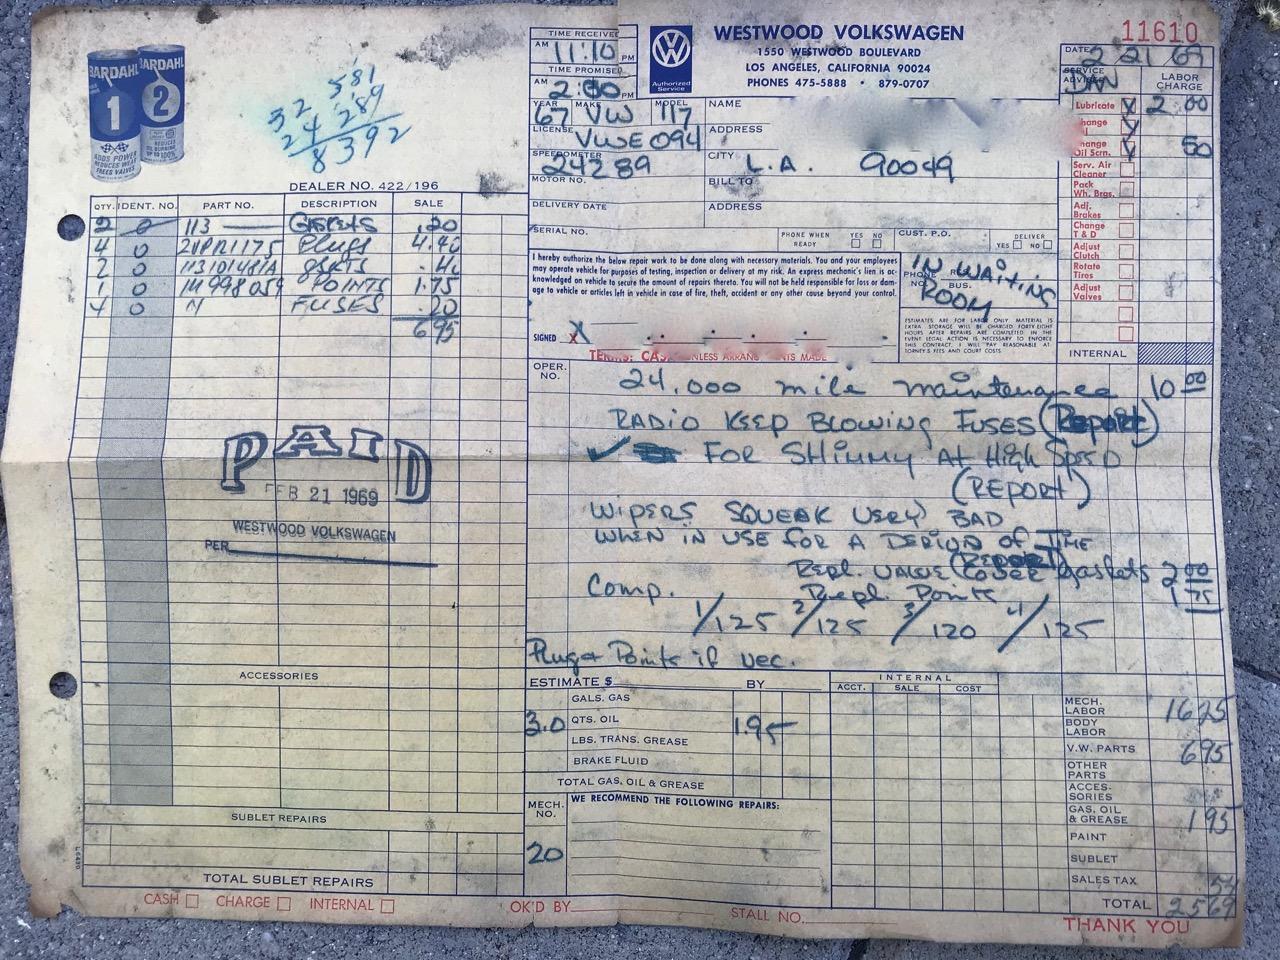 BARDAHL
1
ADDS POWER
REDUCES WEAR
FREES VALVES
BARDAHL
2
32 581
24 289
8392
DEALER NO. 422/196
TIME RECEIVED
AM 11:10 PM
TIME PROMISED
AM 2:00 PM
Authorized
Service
WESTWOOD VOLKSWAGEN
1550 WESTWOOD BOULEVARD
LOS ANGELES, CALIFORNIA 90024
PHONES 475-5888 • 879-0707
11610
DATE 2 21 69
SERVICE
DAN
LABOR
CHARGE
YEAR MAKE MODEL
67 VW 117
LICENSE
VWE 094
SPEEDOMETER
24289
MOTOR NO.
DELIVERY DATE
SERIAL NO.
NAME
ADDRESS
CITY L.A. 90049
BILL TO
ADDRESS
PHONE WHEN
READY YES NO
CUST. P.O.
DELIVER
YES NO
Lubricate X 2 00
Oil Scrn. 50
Serv. Air
Cleaner
Pack
Wh. Brgs.
Adj.
Brakes
Change
T & D
Adjust
Clutch
Rotate
Tires
Adjust
Valves
INTERNAL
I hereby authorize the below repair work to be done along with necessary materials. You and your employees
may operate vehicle for purposes of testing, inspection or delivery at my risk. An express mechanic's lien is ac-
knowledged on vehicle to secure the amount of repairs thereto. You will not be held responsible for loss or dam-
age to vehicle or articles left in vehicle in case of fire, theft, accident or any other cause beyond your control.
SIGNED X
IN WAITING
ROOM
PHONE
NO.
BUS.
ESTIMATES ARE FOR LABOR ONLY, MATERIAL IS
EXTRA. STORAGE WILL BE CHARGED FORTY-EIGHT
HOURS AFTER REPAIRS ARE COMPLETED. IN THE
EVENT LEGAL ACTION IS NECESSARY TO ENFORCE
THIS CONTRACT, I WILL PAY REASONABLE AT-
TORNEY'S FEES AND COURT COSTS
TERMS: CASH UNLESS MADE
QTY. IDENT. NO. PART NO. DESCRIPTION SALE
2 0 113 GASKETS .20
4 0 21PR1175 Plugs 4.40
2 0 113101481A GSKTS .40
1 0 1M998059 POINTS 1.75
4 0 N FUSES .20
6 95
PAID
FEB 21 1969
WESTWOOD VOLKSWAGEN
PER
ACCESSORIES
SUBLET REPAIRS
TOTAL SUBLET REPAIRS
CASH CHARGE INTERNAL
OPER.
NO.
24,000 mile maintenance 10 00
RADIO KEEP BLOWING FUSES (REPORT)
✓ FOR SHIMMY AT HIGH SPEED
(REPORT)
WIPERS SQUEAK VERY BAD
WHEN IN USE FOR A PERIOD OF TIME
(REPORT)
Repl. VALVE COVER Gaskets 2 00
Comp. Repl. Points 1 75
1/125 2/125 3/120 4/125
Plug & Points if nec.
ESTIMATE $ BY
GALS. GAS
3.0 QTS. OIL 1.95
LBS. TRANS. GREASE
BRAKE FLUID
TOTAL GAS, OIL & GREASE
MECH.
NO.
20
WE RECOMMEND THE FOLLOWING REPAIRS:
INTERNAL
ACCT. SALE COST
MECH.
LABOR 16 25
BODY
LABOR
V.W. PARTS 6 95
OTHER
PARTS
ACCES-
SORIES
GAS, OIL
& GREASE 1 95
PAINT
SUBLET
SALES TAX 54
TOTAL 25 69
OK'D BY STALL NO.
THANK YOU